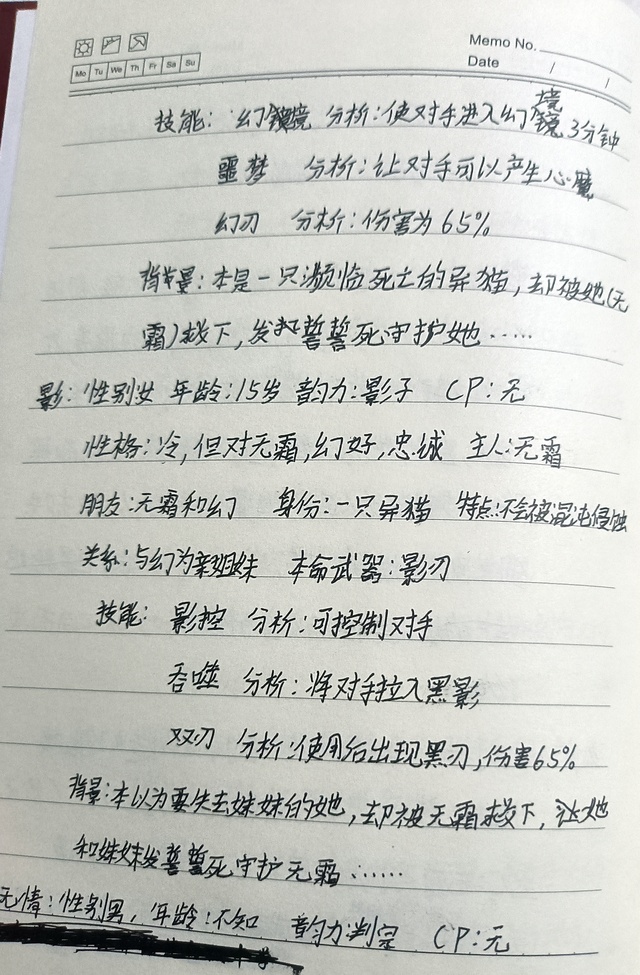 Memo No.
Mo Tu We Th Fr Sa Su
Date / /
技能: 幻境 分析:使对手进入幻境 3分钟
噩梦 分析:让对手可以产生心魔
幻刃 分析:伤害为65%
背景:本是一只濒临死亡的异猫,却被她(无
霜)救下,发誓誓死守护她……
影:性别女 年龄:15岁 韵力:影子 CP:无
性格:冷,但对无霜,幻好,忠诚 主人:无霜
朋友:无霜和幻 身份:一只异猫 特点:不会被混沌侵蚀
关系:与幻为亲姐妹 本命武器:影刃
技能: 影控 分析:可控制对手
吞噬 分析:将对手拉入黑影
双刃 分析:使用后出现黑刃,伤害65%
背景:本以为要失去妹妹的她,却被无霜救下,让她
和妹妹发誓誓死守护无霜……
无情:性别男,年龄:不知 韵力:判定 CP:无